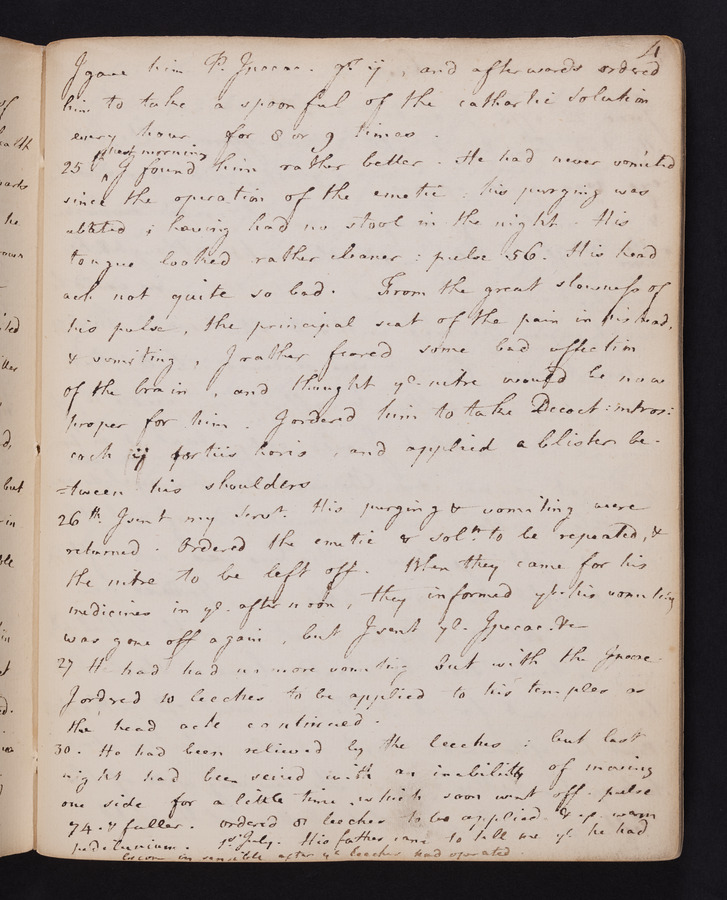 4
I gave him P. Ipecac. gr. ij, and afterwards ordered
him to take a spoonful of the cathartic solution
every hour for 8 or 9 times.
next morning
25th I found him rather better. He had never vomited
since the operation of the emetic: his purging was
abated; having had no stool in the night. His
tongue looked rather cleaner: pulse 56. His head
ach not quite so bad. From the great slowness of
his pulse, the principal seat of the pain in his head,
& vomiting, I rather feared some bad affection
of the brain, and thought ye. nitre would be now
proper for him. I ordered him to take Decoct: nitros:
coch ij tertiis horis, and applied a blister be-
-tween his shoulders
26th. I sent my servt. His purging & vomiting were
returned. Ordered the emetic & soln. to be repeated, &
the nitre to be left off. When they came for his
medicines in ye. afternoon, they informed yt. his vomiting
was gone off again, but I sent ye. Ipecac. &c
27 He had had no more vomiting but with the Ipecac.
I ordered 10 leeches to be applied to his temples as
the head ach continued.
30. He had been relieved by the leeches: but last
night had been seized with an inability of moving
one side for a little time, which soon went off. pulse
74. & fuller. ordered 8 leeches to be applied & a warm
pediluvium. 1st July. His father came to tell me yt. he had
become insensible after ye leeches had operated.